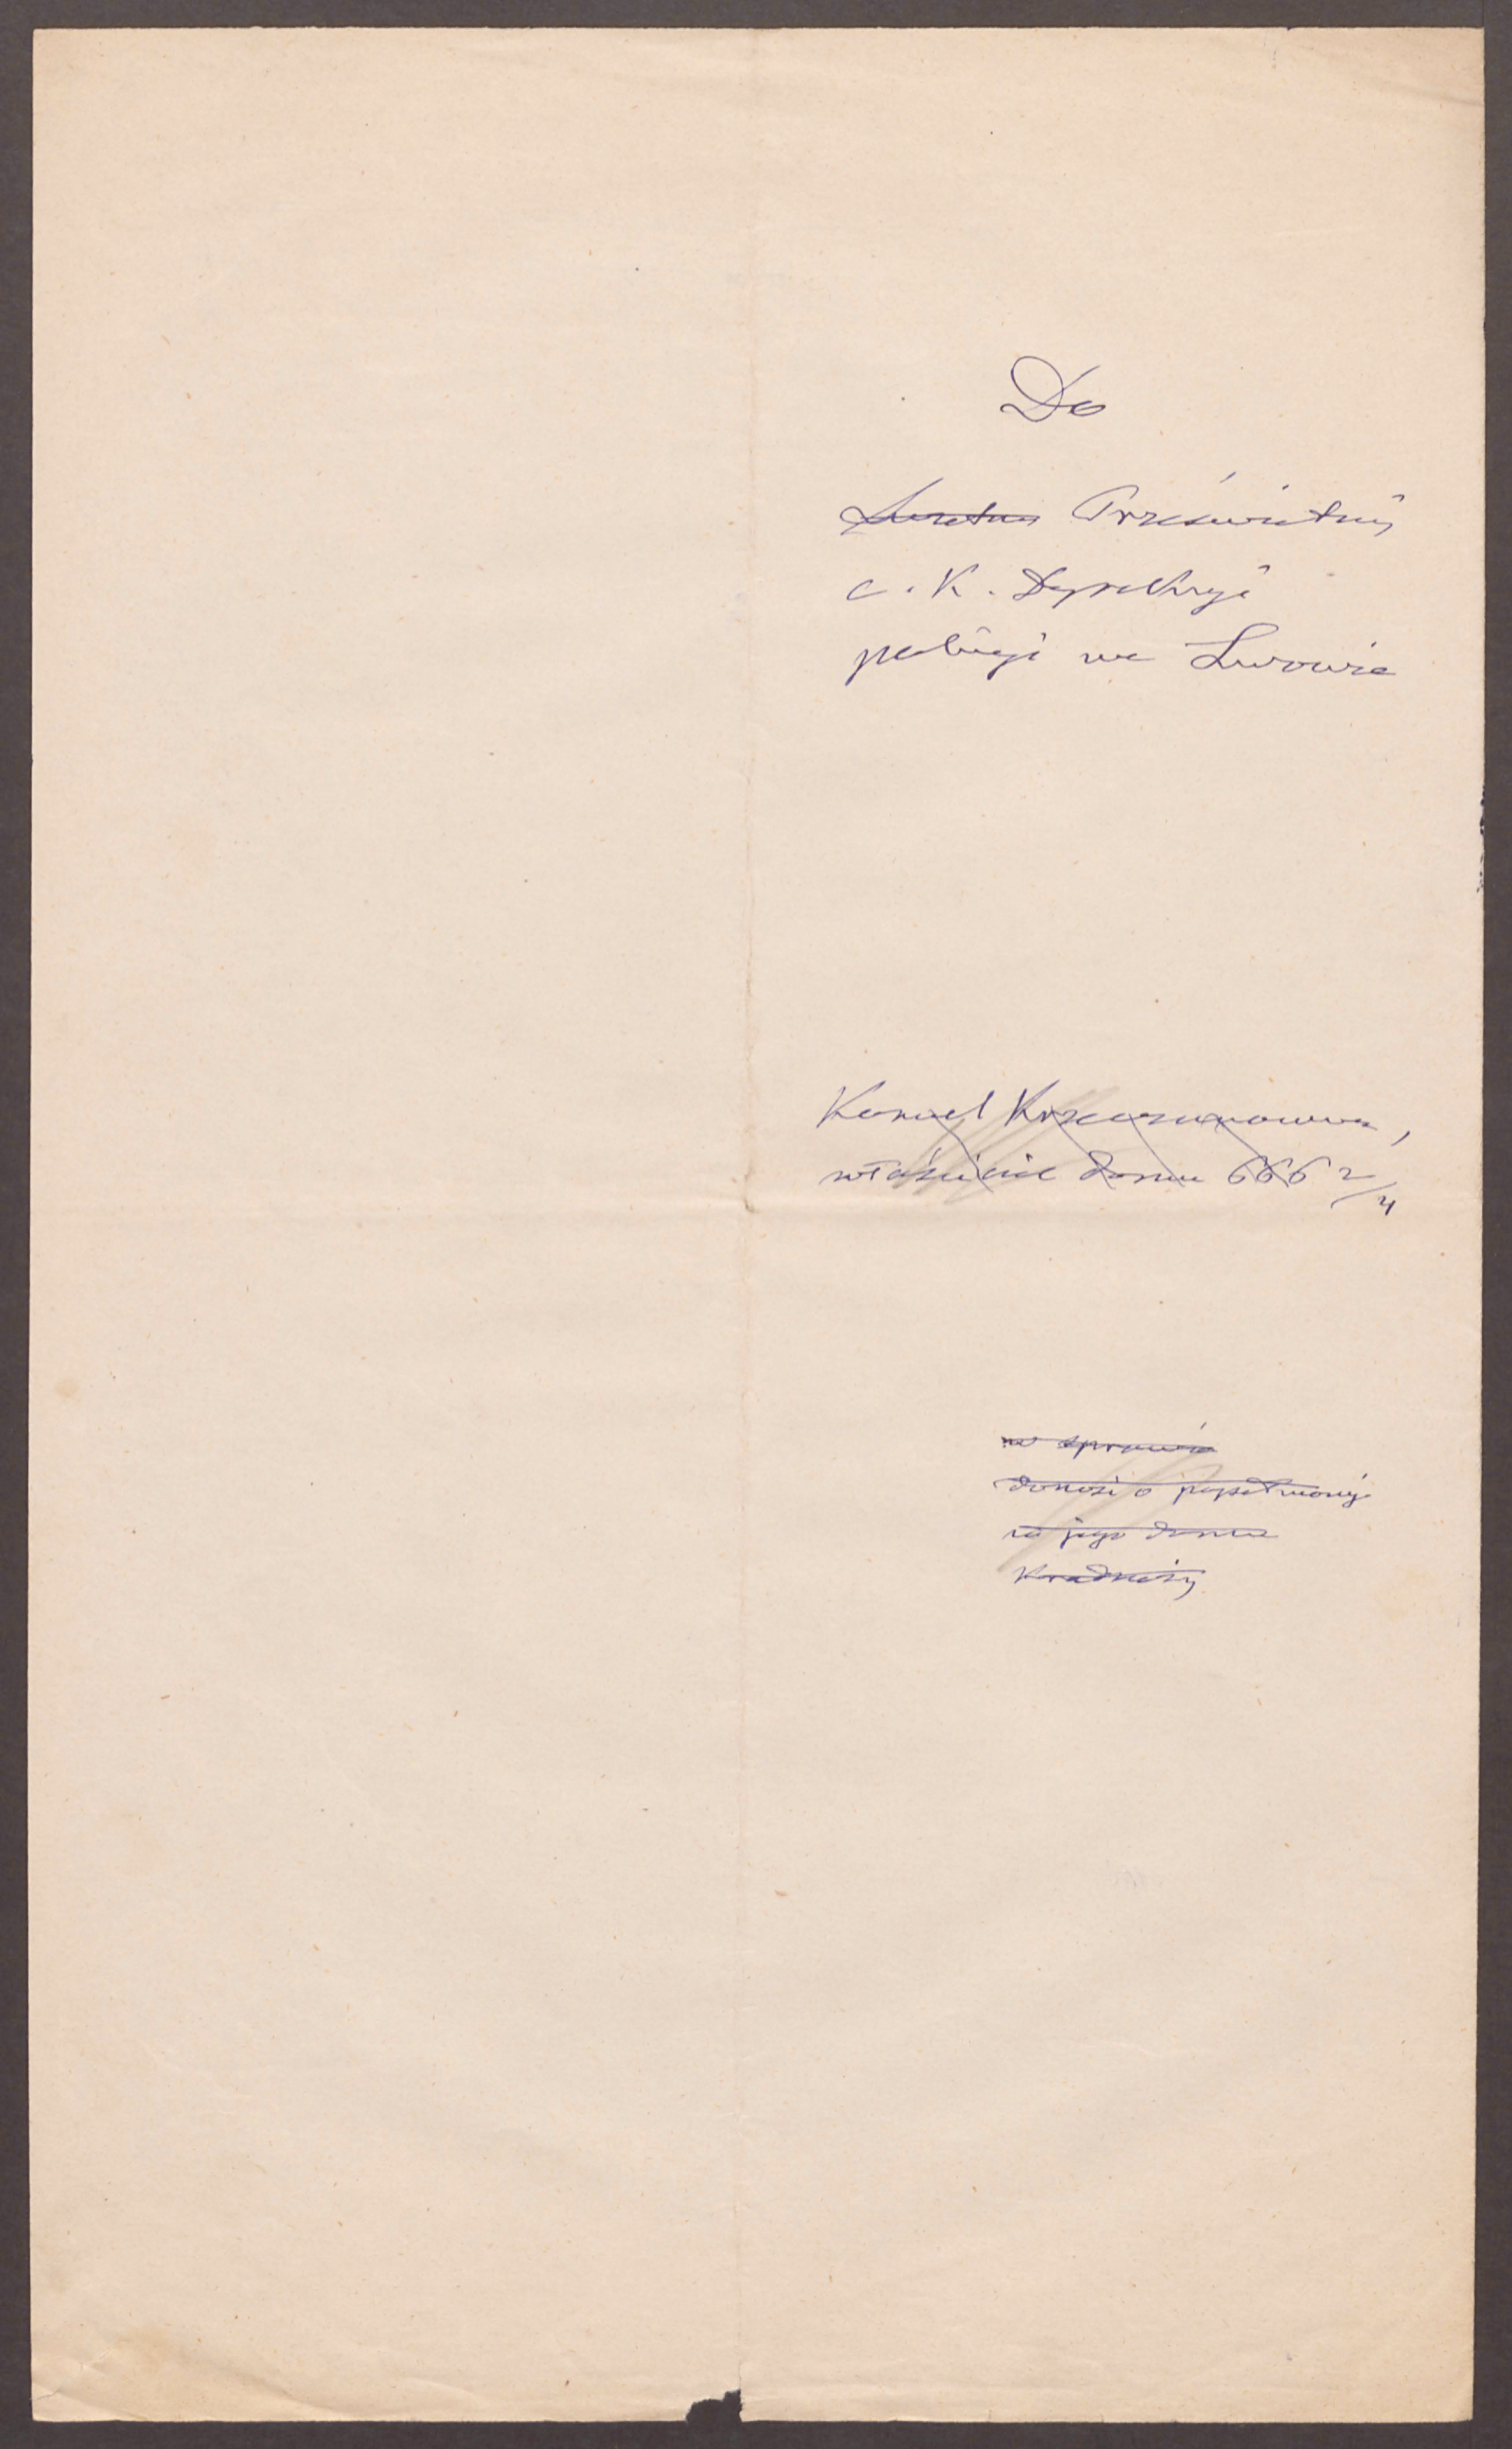 Do
Prześwietnej
c. k. Dyrekcyi
policyi we Lwowie
Kornel Krzeczunowicz,
właściciel domu 666 2/4
w sprawie
donosi o popełnionej
w jego domu
kradzieży